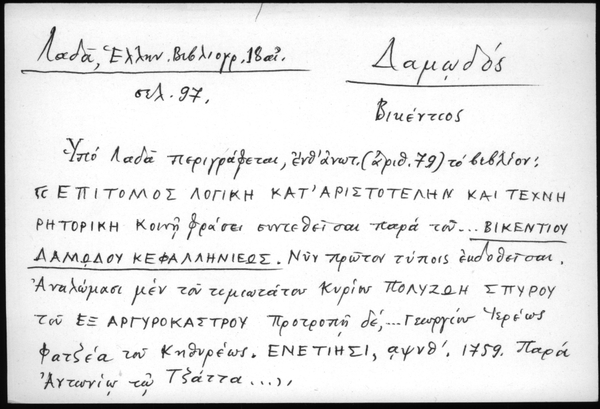 Λαδᾶ, Ἑλλην. Βιβλιογρ. 18 αἰ.
Δαμῳδός
σελ. 97.
Βικέντιος
Ὑπό Λαδᾶ περιγράφεται, ἐνθ' ἀνωτ. (ἀριθ. 79) τό βιβλίον:
« ΕΠΙΤΟΜΟΣ ΛΟΓΙΚΗ ΚΑΤ' ΑΡΙΣΤΟΤΕΛΗΝ ΚΑΙ ΤΕΧΝΗ
ΡΗΤΟΡΙΚΗ Κοινῇ φράσει συντεθεῖσαι παρά τοῦ... ΒΙΚΕΝΤΙΟΥ
ΔΑΜΩΔΟΥ ΚΕΦΑΛΛΗΝΙΕΩΣ. Νῦν πρῶτον τύποις ἐκδοθεῖσαι.
Ἀναλώμασι μέν τοῦ τιμιωτάτου Κυρίου ΠΟΛΥΖΩΗ ΣΠΥΡΟΥ
τοῦ ΕΞ ΑΡΓΥΡΟΚΑΣΤΡΟΥ Προτροπῇ δέ,... Γεωργίου Ἱερέως
Φατζέα τοῦ Κηθυρέως. ΕΝΕΤΙΗΣΙ, αψνθ'. 1759. Παρά
Ἀντωνίῳ τῷ Τζάττα...»,